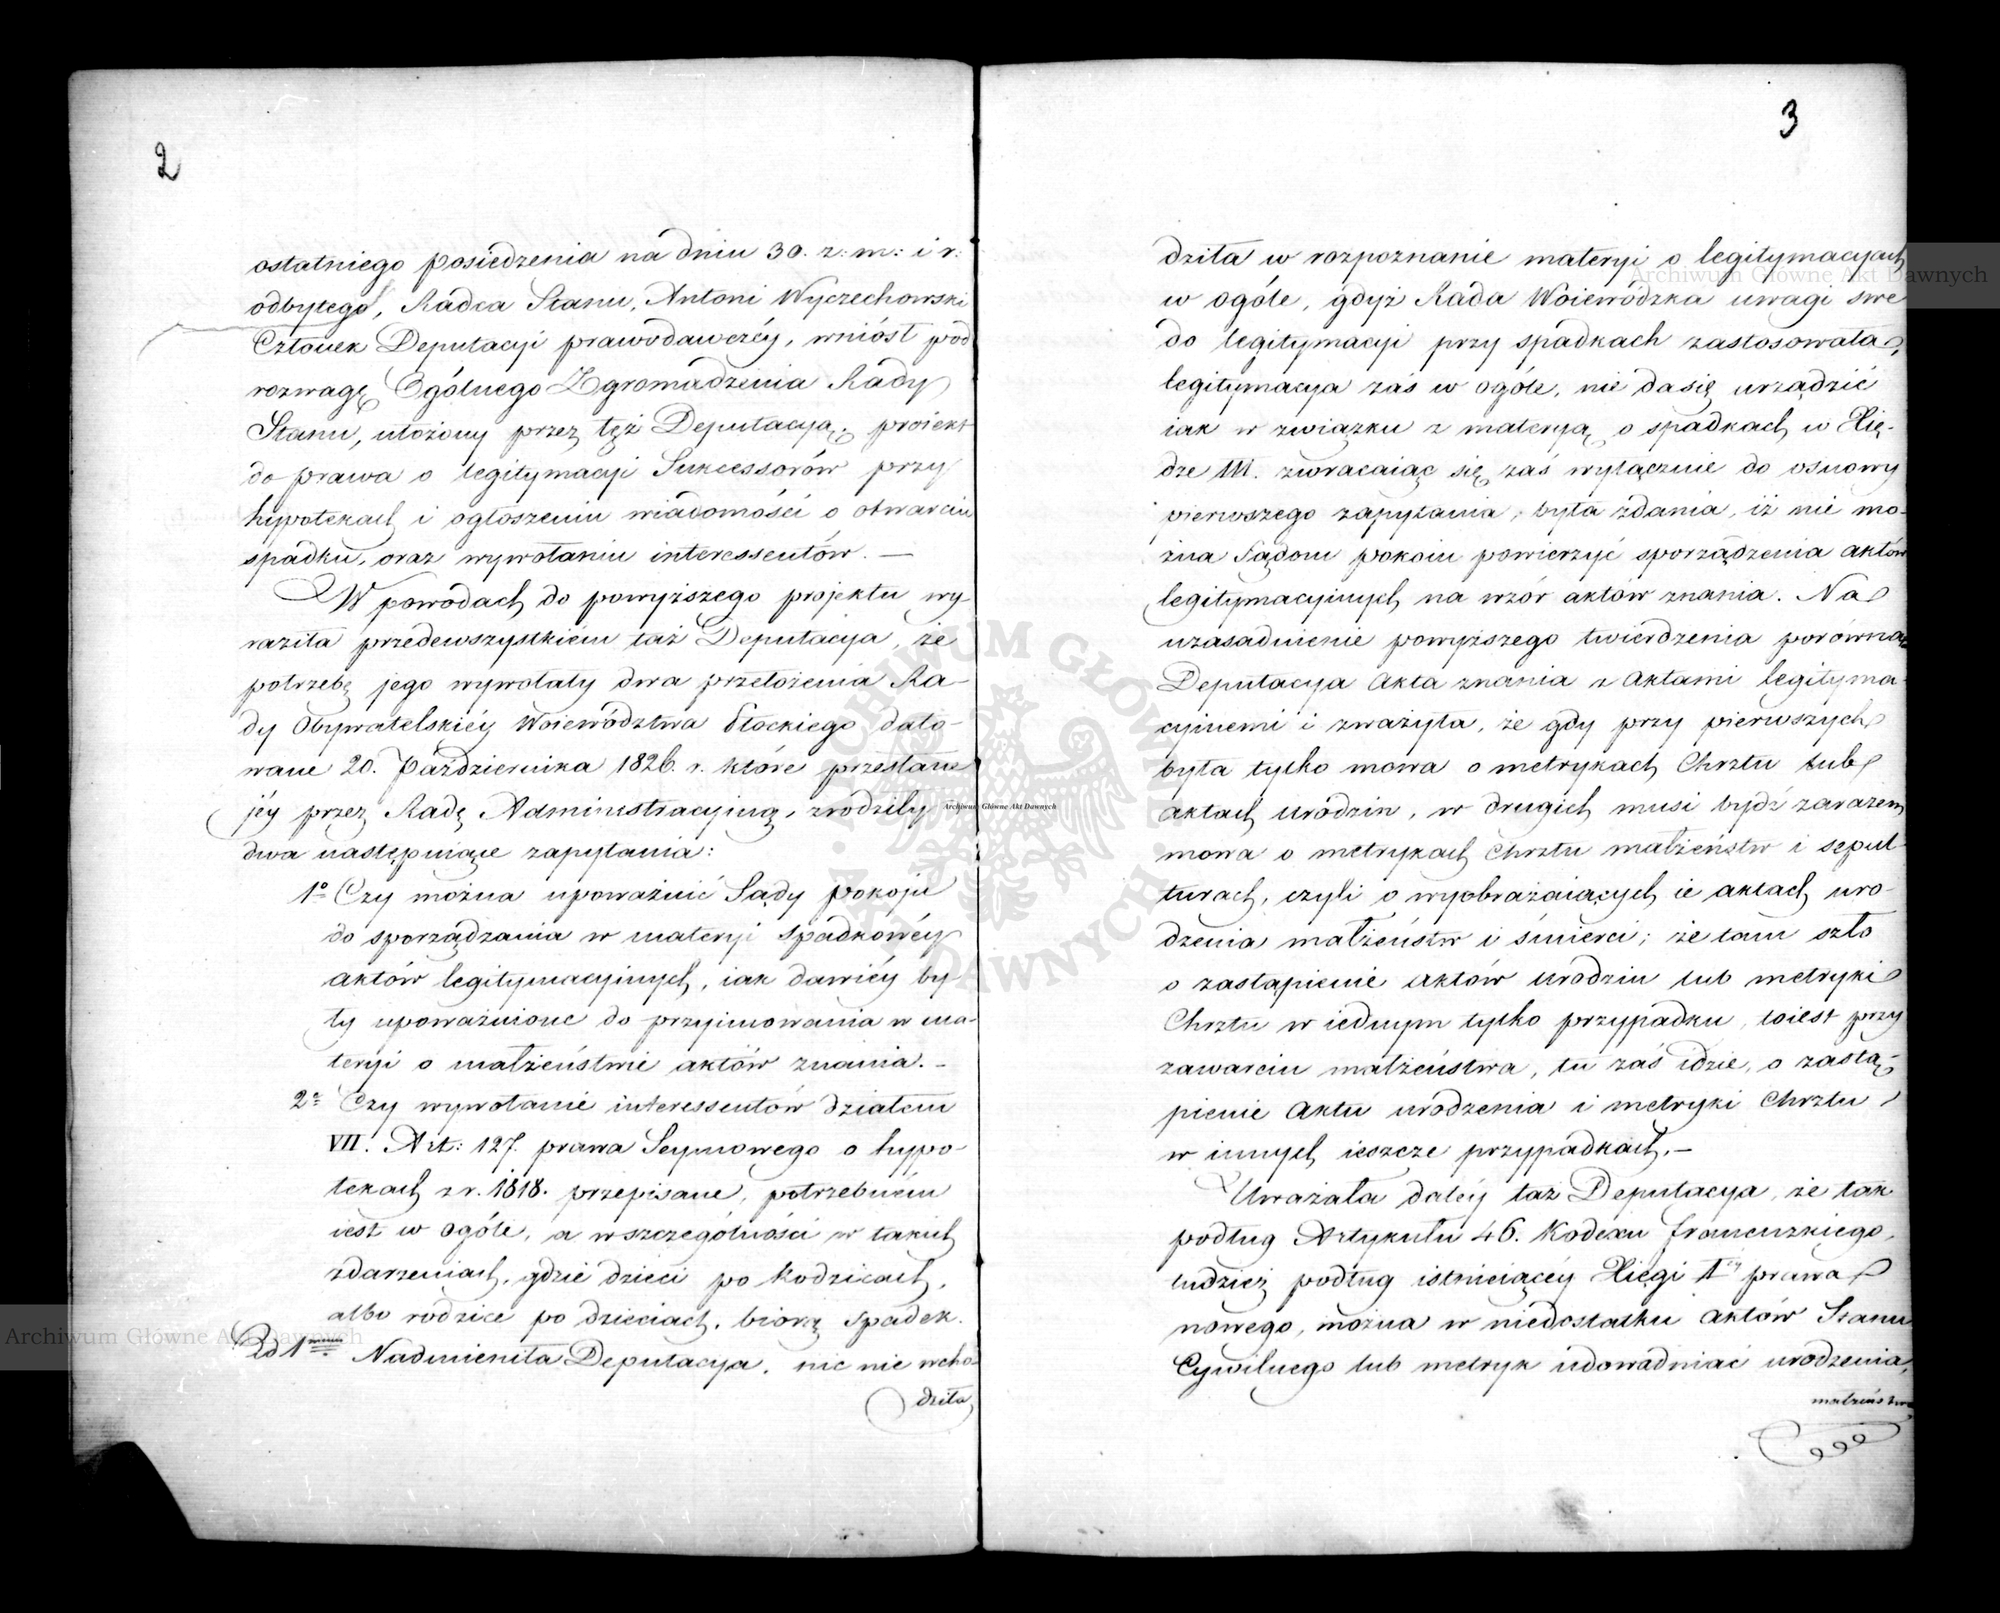 2
ostatniego posiedzenia na dniu 30. z: m: i r:
odbytego, Radca Stanu, Antoni Wyczechowski
Członek Deputacyi prawodawczéy, wniósł pod
rozwagę Ogólnego Zgromadzenia Rady
Stanu, ułożony przez tęż Deputacyą, proiekt
do prawa o legitymacyi Sukcessorów przy
hypotekach i ogłoszeniu wiadomości o otwarciu
spadku, oraz wywołaniu interessentów. —
W powodach do powyższego projektu wy
raziła przedewszystkiém taż Deputacya, że
potrzebę jego wywołały dwa przełożenia Ra-
dy Obywatelskiéy Województwa Płockiego dato-
wane 20. Października 1826. r. które przesłane
jéy przez Radę Administracyiną, zrodziły
dwa następuiące zapytania:
1º Czy można upoważnić Sądy pokoju
do sporządzania w materyi spadkowéy
aktów legitymacyinych, iak dawiéy by
ły upoważnione do przyimowania w ma-
teryi o małżeństwie aktów znania. —
2º Czy wywołanie interessentów działem
VII. Art: 127. prawa Seymowego o hypo-
tekach z r. 1818. przepisane, potrzebném
iest w ogóle, a w szczególności w takich
zdarzeniach, gdzie dzieci po Rodzicach,
albo rodzice po dzieciach, biorą spadek.
Ad 1mum Nadmieniła Deputacya, nic nie wcho-
dziła
3
dziła w rozpoznanie materyi o legitymacyach
w ogóle, gdyż Rada Woiewódzka uwagi swe
do legitymacyi przy spadkach zastosowała,
legitymacya zaś w ogóle, nie da się urządzić
iak w związku z materyą o spadkach w Xię-
dze III. zwracaiąc się zaś wyłącznie do osnowy
pierwszego zapytania, była zdania, iż nie mo-
żna Sądom pokoiu powierzyć sporządzenia aktów
legitymacyinych na wzór aktów znania. Na
uzasadnienie powyższego twierdzenia porówna
Deputacya Akta znania z Aktami legityma-
cyinemi i zważyła, że gdy przy pierwszych
była tylko mowa o metrykach Chrztu lub
aktach urodzin, w drugich musi bydź zarazem
mowa o metrykach Chrztu małżeństw i sepul-
turach, czyli o wyobrażaiących ie aktach uro-
dzenia małżeństw i śmierci; że tam szło
o zastąpienie aktów urodzin lub metryki
Chrztu w iednym tylko przypadku, toiest przy
zawarciu małżeństwa, tu zaś idzie, o zastą-
pienie Aktu urodzenia i metryki Chrztu
w innych ieszcze przypadkach. —
Uważała daléy taż Deputacya, że tak
podług Artykułu 46. Kodexu francuzkiego,
tudzież podług istnieiącéy Xięgi 1éy prawa
nowego, można w niedostatku aktów Stanu
Cywilnego lub metryk udowadniać urodzenia,
małżeństwa
Archiwum Główne Akt Dawnych
Archiwum Główne Akt Dawnych
Archiwum Główne Akt Dawnych
ARCHIWUM GŁÓWNE AKT DAWNYCH